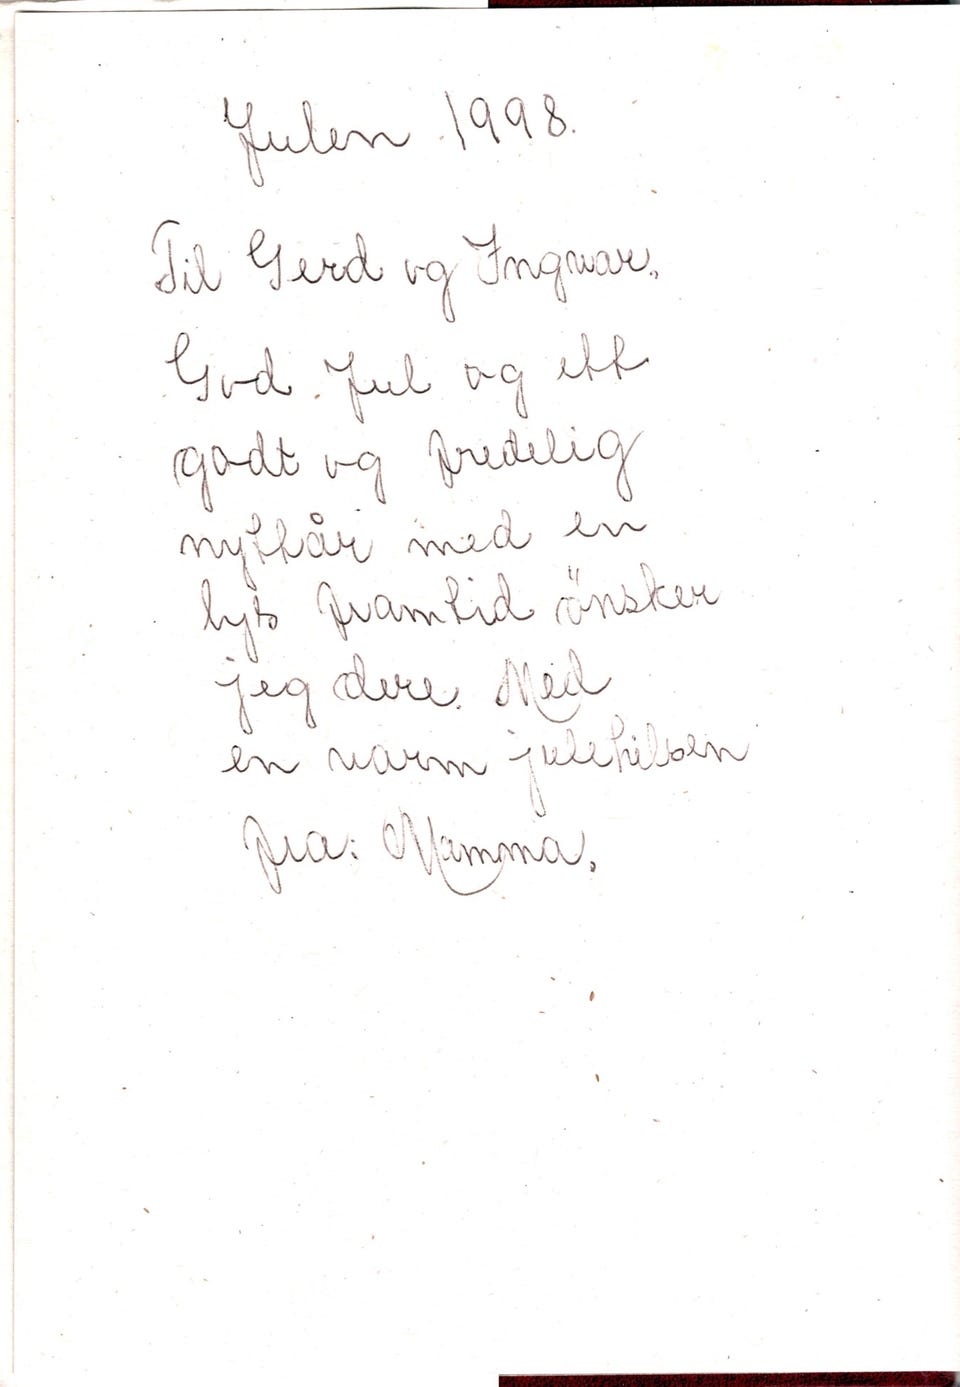 Julen 1998.
Til Gerd og Ingvar.
God Jul og ett
godt og fredelig
nyttår med en
lys framtid önsker
jeg dere. Med
en varm julehilsen
fra: Mamma.